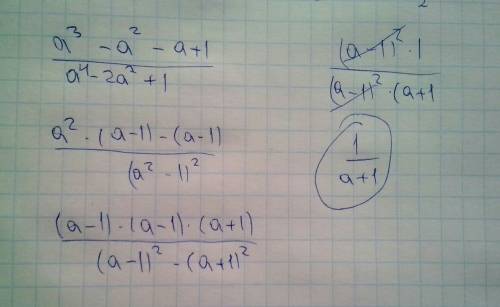 a³ - a² - a + 1
a⁴ - 2a² + 1
a² · (a-1) - (a-1)
(a² - 1)²
(a-1) · (a-1) · (a+1)
(a-1)² - (a+1)²
(a-1)² · 1
(a-1)² · (a+1
1
a+1